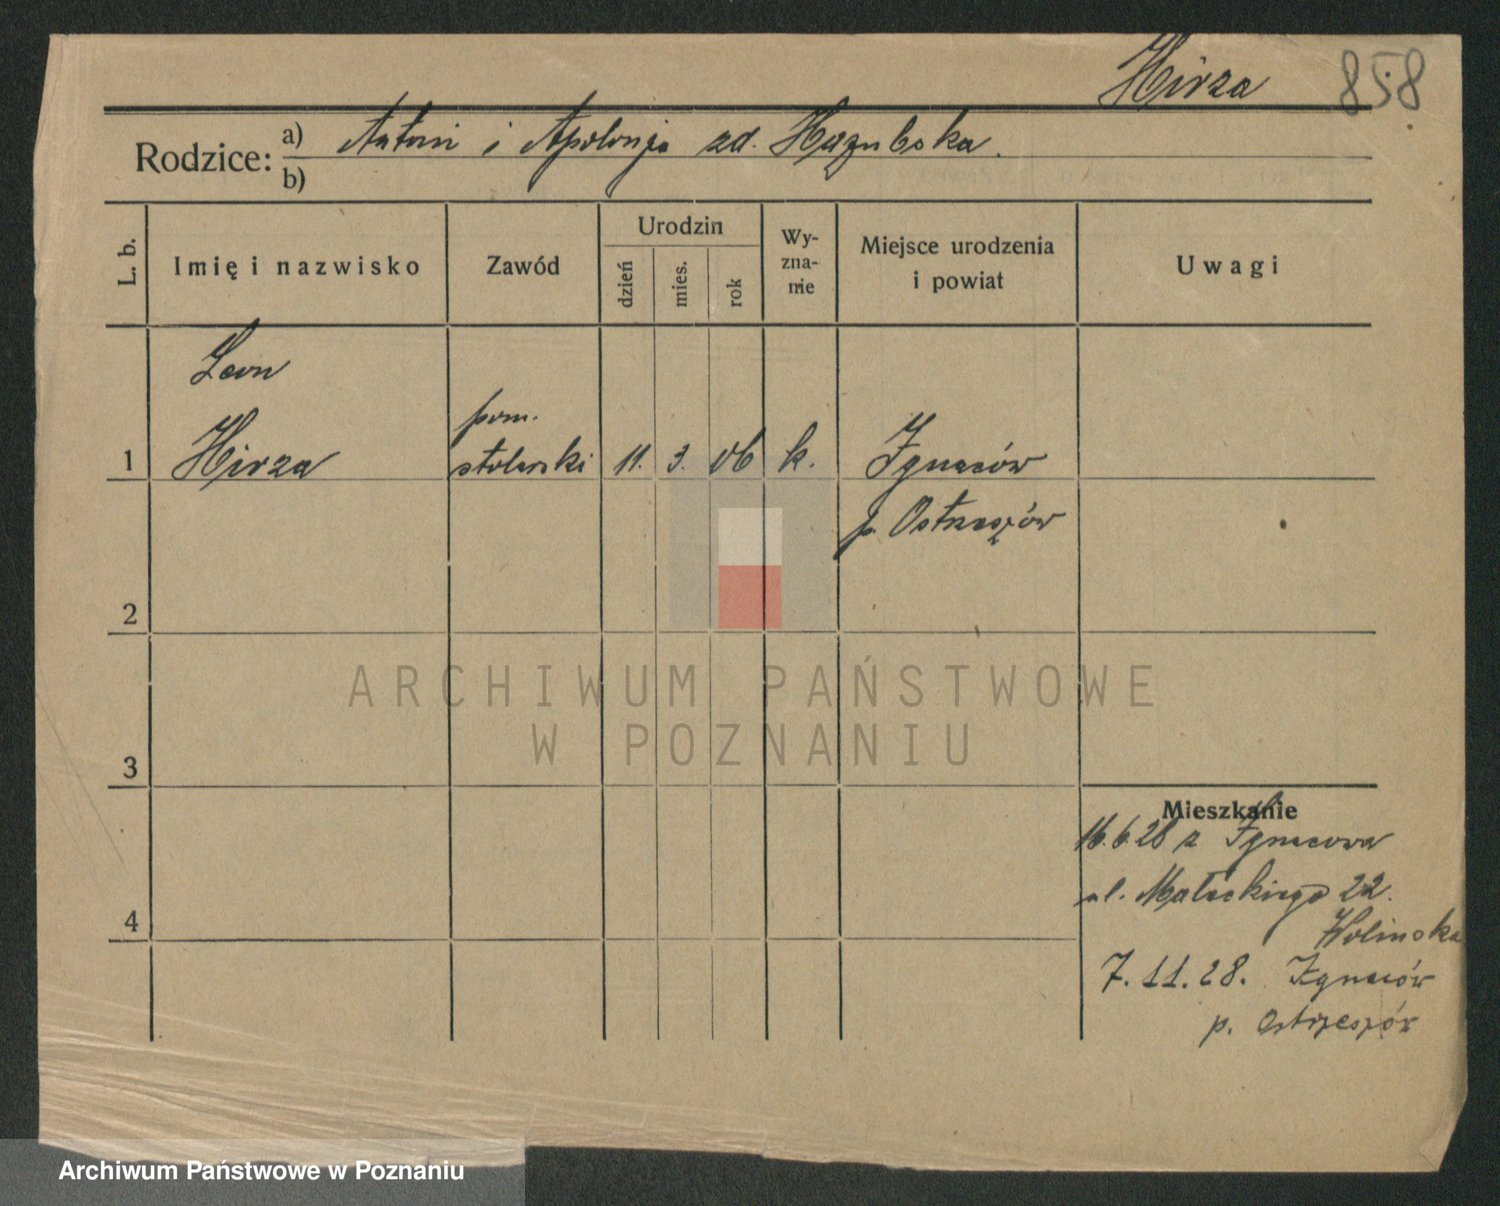 Hirza 858
Rodzice: a) Antoni i Apolonja zd.
b)
L. b. Imię i nazwisko Zawód Urodzin dzień mies. rok Wy-zna-nie Miejsce urodzenia i powiat Uwagi
Leon
pom.
1 Hirza stolarski 11. 3. 06 k. Ignaców
p. Ostrzeszów
2
ARCHIWUM PAŃSTWOWE
W POZNANIU
3
Mieszkanie
16.6.28 z Ignacowa
ul. Małeckiego 22.
4 Wolinska
7.11.28. Ignaców
p. Ostrzeszów
Archiwum Państwowe w Poznaniu